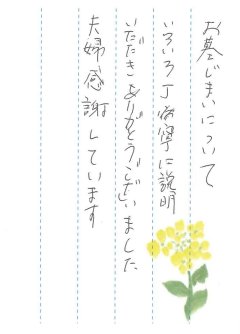 お墓じまいについて
いろいろ丁寧に説明
いただきありがとうございました
夫婦感謝しています